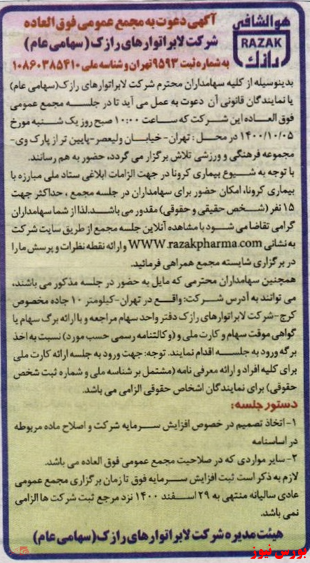 هوالشافی
RAZAK
رازک
آگهی دعوت به مجمع عمومی فوق العاده
شرکت لابراتوارهای رازک (سهامی عام)
به شماره ثبت ۹۵۹۳ تهران و شناسه ملی ۱۰۸۶۰۳۸۵۴۱۰
بدینوسیله از کلیه سهامداران محترم شرکت لابراتوارهای رازک(سهامی عام)
یا نمایندگان قانونی آن دعوت به عمل می آید تا در جلسه مجمع عمومی
فوق العاده این شرکت که ساعت ۱۰:۰۰ صبح روز یک شنبه مورخ
۱۴۰۰/۱۰/۰۵ در محل : تهران- خیابان ولیعصر-پایین تر از پارک وی-
مجموعه فرهنگی و ورزشی تلاش برگزار می گردد، حضور به هم رسانند.
با توجه به شیوع بیماری کرونا در جهت الزامات ابلاغی ستاد ملی مبارزه با
بیماری کرونا، امکان حضور برای سهامداران در جلسه مجمع ، حداکثر جهت
۱۵ نفر (شخص حقیقی و حقوقی) مقدور می باشد.لذا از شما سهامداران
گرامی تقاضا می شود با مشاهده آنلاین جلسه مجمع از طریق سایت شرکت
به نشانی WWW.razakpharma.com و ارائه نقطه نظرات و پرسش ما را
در برگزاری شایسته مجمع همراهی فرمائید.
همچنین سهامداران محترمی که مایل به حضور در جلسه مذکور می باشند،
می توانند به آدرس شرکت: واقع در تهران-کیلومتر ۱۰ جاده مخصوص
کرج-شرکت لابراتوارهای رازک دفتر واحد سهام مراجعه و با ارائه برگ سهام یا
گواهی موقت سهام و کارت ملی و (وکالتنامه رسمی حسب مورد) نسبت به اخذ
برگه ورود به جلسه اقدام نمایند. توجه: جهت ورود به جلسه ارائه کارت ملی
برای کلیه افراد و ارائه معرفی نامه (مشتمل بر شناسه ملی و شماره ثبت شخص
حقوقی) برای نمایندگان اشخاص حقوقی الزامی می باشد.
دستور جلسه:
۱- اتخاذ تصمیم در خصوص افزایش سرمایه شرکت و اصلاح ماده مربوطه
در اساسنامه
۲- سایر مواردی که در صلاحیت مجمع عمومی فوق العاده می باشد.
لازم به ذکر است ثبت افزایش سرمایه فوق تا زمان برگزاری مجمع عمومی
عادی سالیانه منتهی به ۲۹ اسفند ۱۴۰۰ نزد مرجع ثبت شرکت ها الزامی
نمی باشد.
هیئت مدیره شرکت لابراتوارهای رازک (سهامی عام)
بورس نیوز